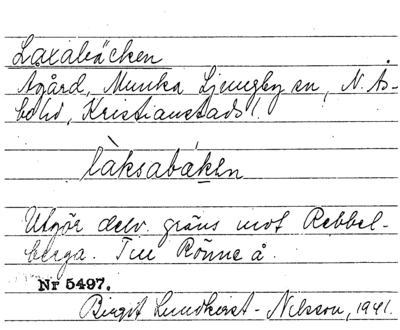 Laxabäcken
Ågård, Munka Ljungby sn, N. Ås-
bo hd, Kristianstads l.
làksabäken
Utgör delv. gräns mot Rebbel-
berga. Till Rönne å.
Nr 5497.
Birgit Lundkvist-Nilsson, 1941.